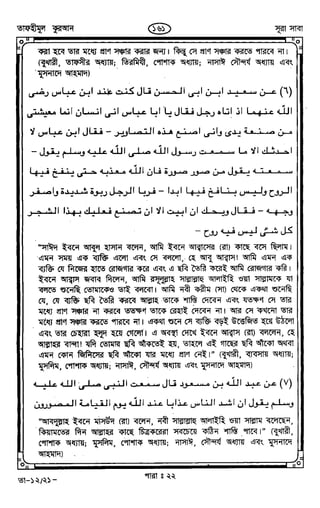 তাফহীমুল কুরআন
১৬১
সূরা সাবা
করা হবে তার মধ্যে প্রাণ সঞ্চার করার জন্য। কিন্তু সে প্রাণ সঞ্চার করতে পারবে না।
(বুখারী, তাফসীর অধ্যায়; তিরমিযী, পোশাক অধ্যায়; নাসাঈ সৌন্দর্য অধ্যায় এবং
মুসনাদে আহমাদ)
(٦) عن سعيد ابن ابى الحسن قال كنت عند ابن عباس رضى
الله عنهما اذ اتاه رجل فقال يا ابا عباس انى انسان انما معيشتى
من صنعة يدى وانى اصنع هذه التصاوير - فقال ابن عباس لا
احدثك الا ما سمعت رسول الله صلى الله عليه وسلم يقول -
سمعته يقول من صور صورة فان الله معذبه حتى ينفخ فيها
الروح وليس بنافخ فيها ابدا - فربا الرجل ربوة شديدة واصفر
وجهه - فقال ويحك ان ابيت الا ان تصنع فعليك بهذا الشجر
كل شئى ليس فيه روح -
"সাঈদ ইবনে আবুল হাসান বলেন, আমি ইবনে আব্বাসের (রা) কাছে বসে ছিলাম।
এমন সময় এক ব্যক্তি এলো এবং সে বললো, হে আবু আব্বাস! আমি এমন এক
ব্যক্তি যে নিজের হাতে রোজগার করে এবং এ ছবি তৈরি করেই আমি রোজগার করি।
ইবনে আব্বাস জবাব দিলেন, আমি রসূলুল্লাহ সাল্লাল্লাহু আলাইহি ওয়া সাল্লামকে যা
বলতে শুনেছি তোমাকেও তাই বলবো। আমি নবী করীম (সা) থেকে একথা শুনেছি
যে, যে ব্যক্তি ছবি তৈরি করবে আল্লাহ তাকে শাস্তি দেবেন এবং যতক্ষণ সে তার
মধ্যে প্রাণ সঞ্চার না করবে ততক্ষণ তাকে রেহাই দেবেন না। আর সে কখনো তার
মধ্যে প্রাণ সঞ্চার করতে পারবে না। একথা শুনে সে ব্যক্তি বড়ই উত্তেজিত হয়ে উঠলো
এবং তার চেহারা হলুদ হয়ে গেলো। এ অবস্থা দেখে ইবনে আব্বাস (রা) বললেন, হে
আল্লাহর বান্দা! যদি তোমার ছবি আঁকতেই হয়, তাহলে এই গাছের ছবি আঁকো অথবা
এমন কোন জিনিসের ছবি আঁকো যার মধ্যে প্রাণ নেই।" (বুখারী, ব্যবসায় অধ্যায়;
মুসলিম, পোশাক অধ্যায়; নাসাঈ, সৌন্দর্য অধ্যায় এবং মুসনাদে আহমাদ)
(٧) عن عبد الله بن مسعود قال سمعت النبى صلى الله عليه
وسلم يقول ان اشد الناس عذابا عند الله يوم القيامة المصورون
"আবদুল্লাহ ইবনে মাসউদ (রা) বলেন, নবী সাল্লাল্লাহু আলাইহি ওয়া সাল্লাম বলেছেন,
কিয়ামতের দিন আল্লাহর কাছে চিত্রকরেরা সবচেয়ে কঠিন শাস্তি পাবে।" (বুখারী,
পোশাক অধ্যায়; মুসলিম, পোশাক অধ্যায়; নাসাঈ, সৌন্দর্য অধ্যায় এবং মুসনাদে
আহমাদ)
তা-১২/২১-
পারা ঃ ২২